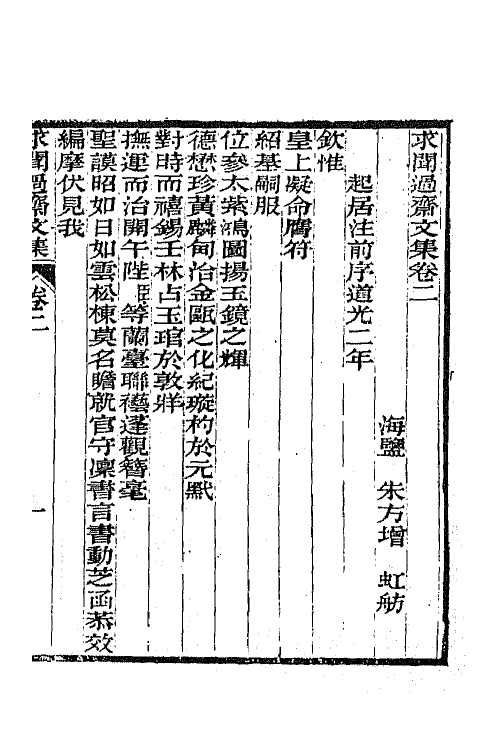 求聞過齋文集卷二
海鹽 朱方增 虹舫
起居注前序道光二年
欽惟
皇上凝命膺符
紹基嗣服
位參太紫鴻圖揚玉鏡之輝
德懋珍黃麟甸冶金甌之化紀璇杓於元默
對時而禧錫壬林占玉琯於敦牂
撫運而治開午陛 等蘭臺聯襼蓬觀簪毫
聖謨昭如日如雲松棟莫名瞻就官守凜書言書動芝函恭效
編摩伏見我
求聞過齋文集 卷二 一